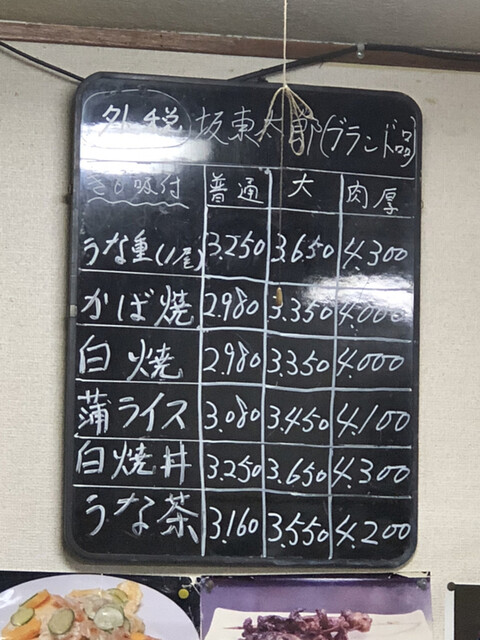 外税 坂東太郎(ブランド品)
きも吸付 普通 大 肉厚
うな重(1尾) 3.250 3.650 4.300
かば焼 2.980 3.350 4.000
白焼 2.980 3.350 4.000
蒲ライス 3.080 3.450 4.100
白焼丼 3.250 3.650 4.300
うな茶 3.160 3.550 4.200